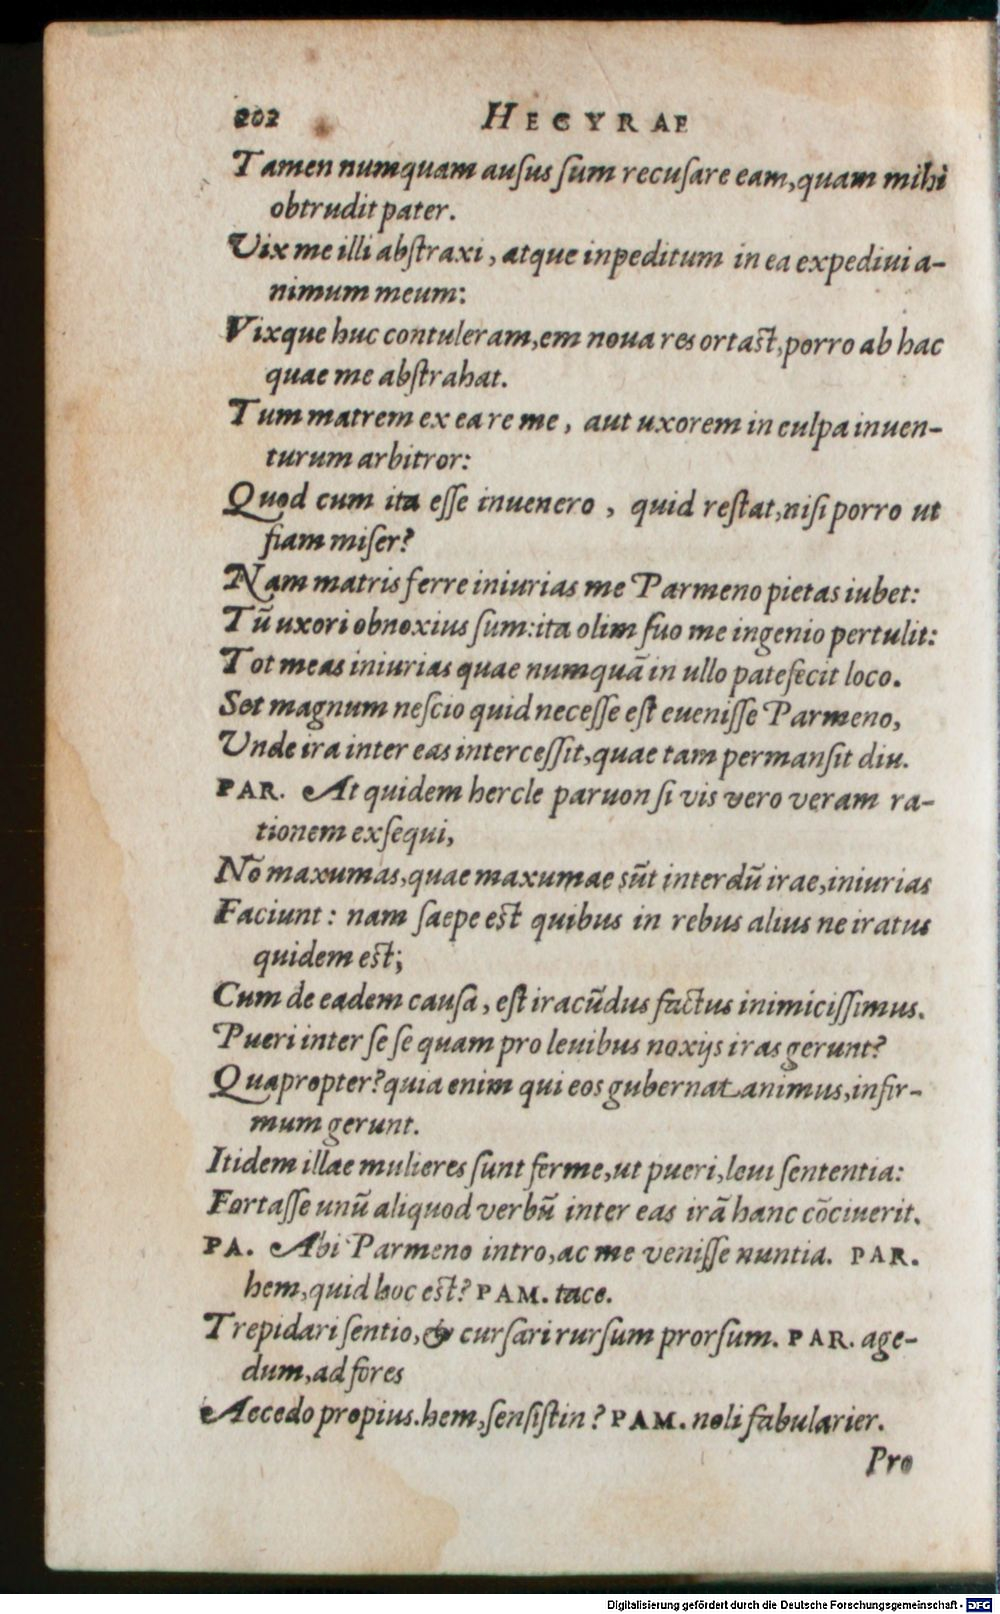 202 HECYRAE
Tamen numquam ausus sum recusare eam, quam mihi
obtrudit pater.
Vix me illi abstraxi, atque inpeditum in ea expediui a-
nimum meum:
Vixque huc contuleram, em noua res ortast, porro ab hac
quae me abstrahat.
Tum matrem ex ea re me, aut uxorem in culpa inuen-
turum arbitror:
Quod cum ita esse inuenero, quid restat, nisi porro ut
fiam miser?
Nam matris ferre iniurias me Parmeno pietas iubet:
Tū uxori obnoxius sum: ita olim suo me ingenio pertulit:
Tot meas iniurias quae numquā in ullo patefecit loco.
Set magnum nescio quid necesse est euenisse Parmeno,
Unde ira inter eas intercessit, quae tam permansit diu.
PAR. At quidem hercle paruon si vis vero veram ra-
tionem exsequi,
Nō maxumas, quae maxumae sūt interdū irae, iniurias
Faciunt: nam saepe est quibus in rebus alius ne iratus
quidem est;
Cum de eadem causa, est iracūdus factus inimicissimus.
Pueri inter se se quam pro leuibus noxijs iras gerunt?
Quapropter? quia enim qui eos gubernat animus, infir-
mum gerunt.
Itidem illae mulieres sunt ferme, ut pueri, leui sententia:
Fortasse unū aliquod verbū inter eas irā hanc cōciuerit.
PA. Abi Parmeno intro, ac me venisse nuntia. PAR.
hem, quid hoc est? PAM. tace.
Trepidari sentio, & cursari rursum prorsum. PAR. age-
dum, ad fores
Accedo propius. hem, sensistin? PAM. noli fabularier.
Pro
Digitalisierung gefördert durch die Deutsche Forschungsgemeinschaft - DFG